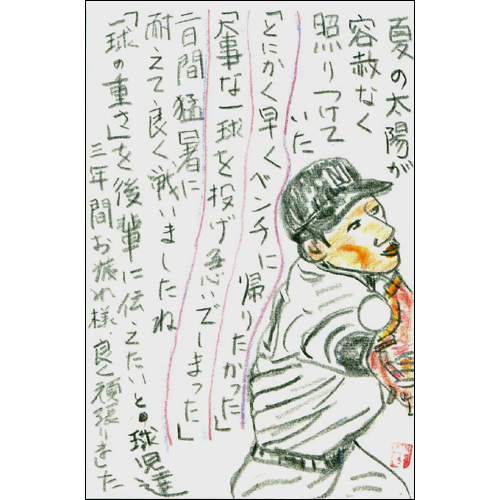 夏の太陽が
容赦なく
照りつけて
いた
「とにかく早くベンチに帰りたかった」
「大事な一球を投げ急いでしまった」
二日間猛暑に
耐えて良く戦いましたね
「一球の重さ」を後輩に伝えたいと。球児達
三年間お疲め様、良く頑張りました